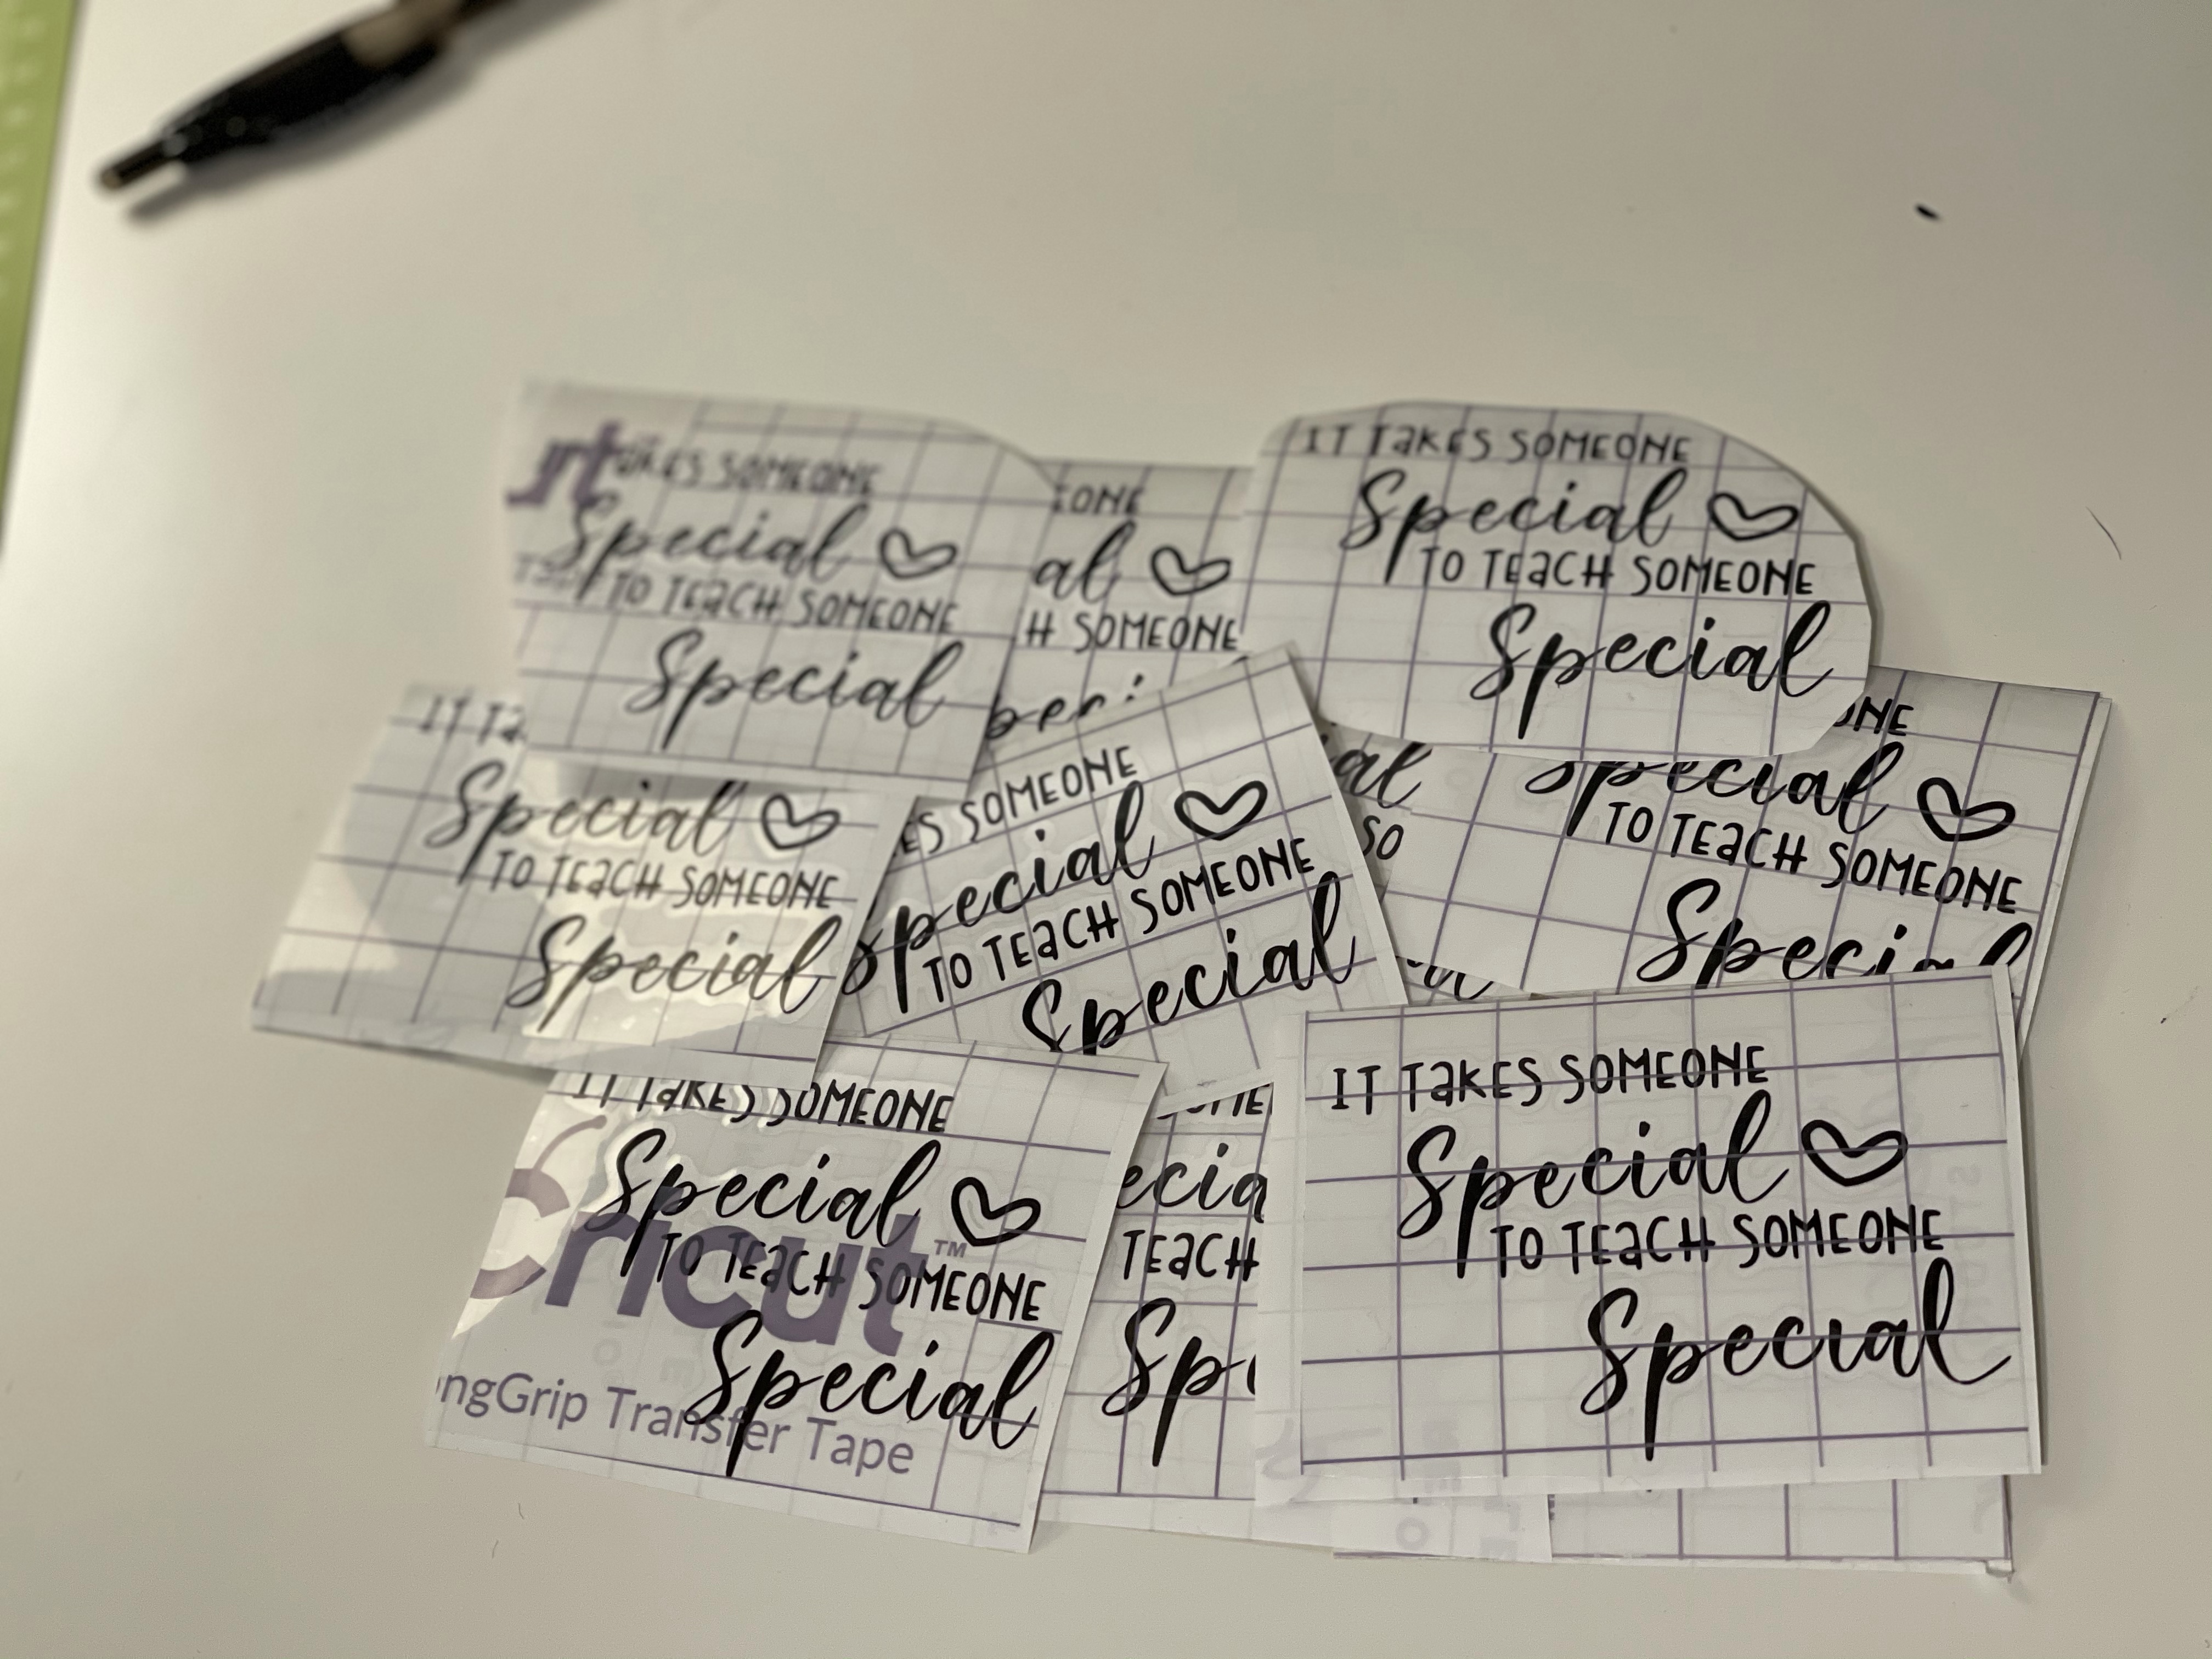 rt
TaKES SOMEONE
Special
TO TEaCH SOMEONE
Special
EONE
al
H SOMEONE
IT TaKES SOMEONE
Special
TO TEaCH SOMEONE
Special
IT Ta
Special
TO TEaCH SOMEONE
Special
ES SOMEONE
Special
TO TEaCH SOMEONE
Special
al
SO
ONE
Special
TO TEaCH SOMEONE
Special
IT TaKES SOMEONE
Special
TO TEaCH SOMEONE
Special
Cricut™
ngGrip Transfer Tape
ecia
TEaCH
Sp
IT TaKES SOMEONE
Special
TO TEaCH SOMEONE
Special